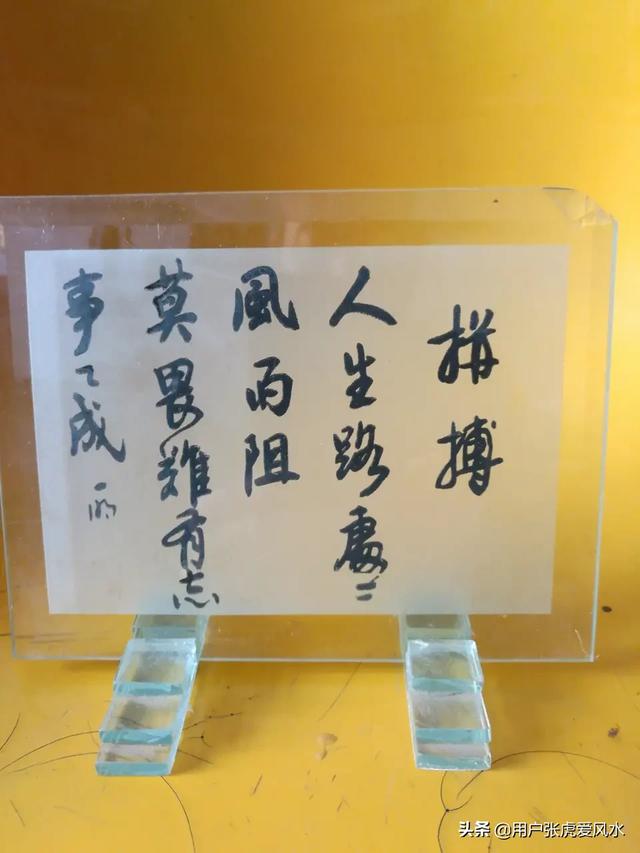 拼搏
人生路處々
風雨阻
莫畏難有志
事々成
头条 @用户张虎爱风水